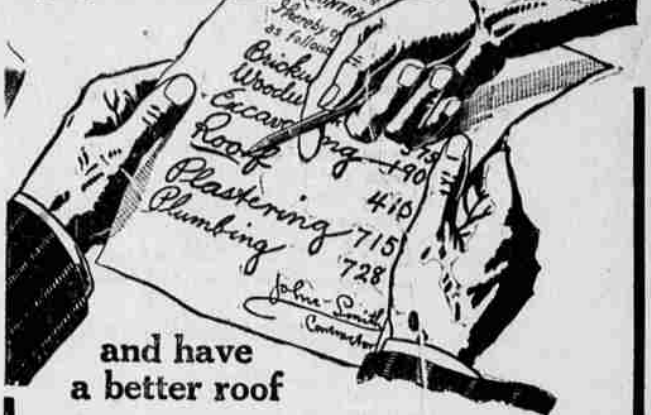 CONTRA
I hereby of
as follow
Bricku
Woodw
Excava ng 490
Roof 410
Plastering 715
Plumbing 728
John Smith
Contractor
and have
a better roof